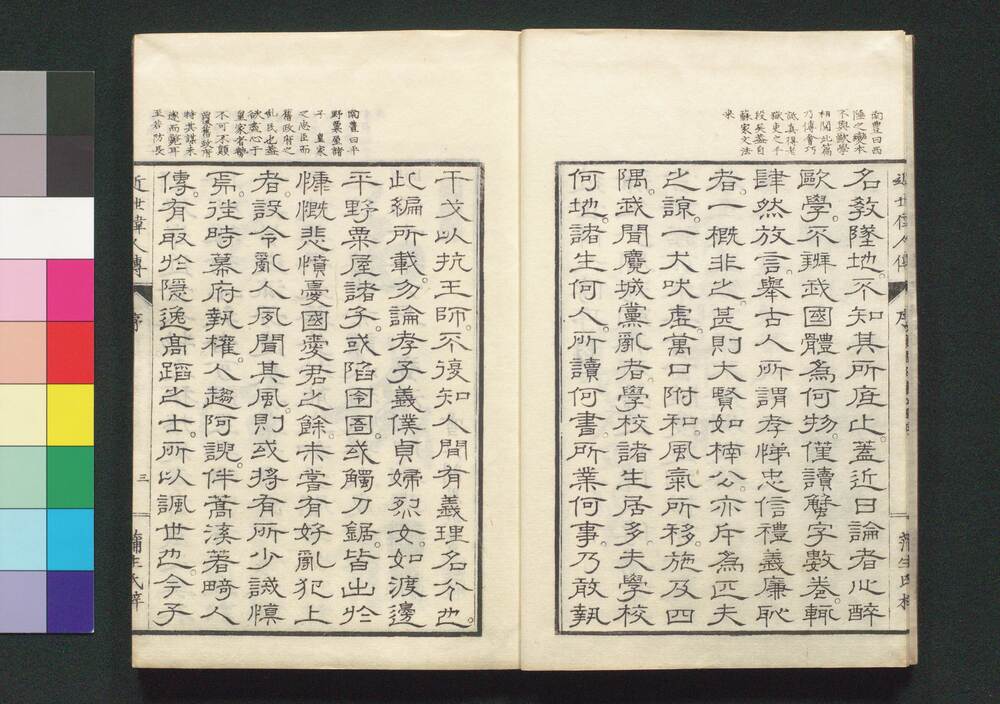 南豊曰西
陲之變本
不與歐學
相関此篇
乃傅會巧
詆真得老
獄吏之手
段矣蓋自
蘇家文法
来
名敎墜地。不知其所底止。蓋近日論者心醉
歐學。不辨我國體為何物。僅讀蟹字數巻。輒
肆然放言。舉古人所謂孝悌忠信禮義廉恥
者。一概非之。甚則大賢如楠公。亦斥為匹夫
之諒。一犬吠虚。萬口附和。風氣所移。施及四
隅。我聞麑城黨亂者。學校諸生居多。夫學校
何地。諸生何人。所讀何書。所業何事。乃敢執
南豊曰平
野粟屋諸
子皇家
之忠臣而
舊政府之
乱民也蓋
欲盡心于
皇家者勢
不可不顛
覆舊政府
特其謀未
遂而斃耳
至若防長
干戈以抗王師。不復知人間有義理名分也。
此編所載。勿論孝子義僕貞婦烈女。如渡邊
平野粟屋諸子。或陥囹圄。或觸刀鋸。皆出於
慷慨悲憤憂國愛君之餘。未嘗有好亂犯上
者。設令亂人夙聞其風。則或将有所少誡慎
焉。往時幕府執權。人趨阿諛。伴蒿溪著畸人
傳。有取於隠逸髙蹈之士。所以諷世也。今子
近世偉人傳
序
三
蒲生氏梓